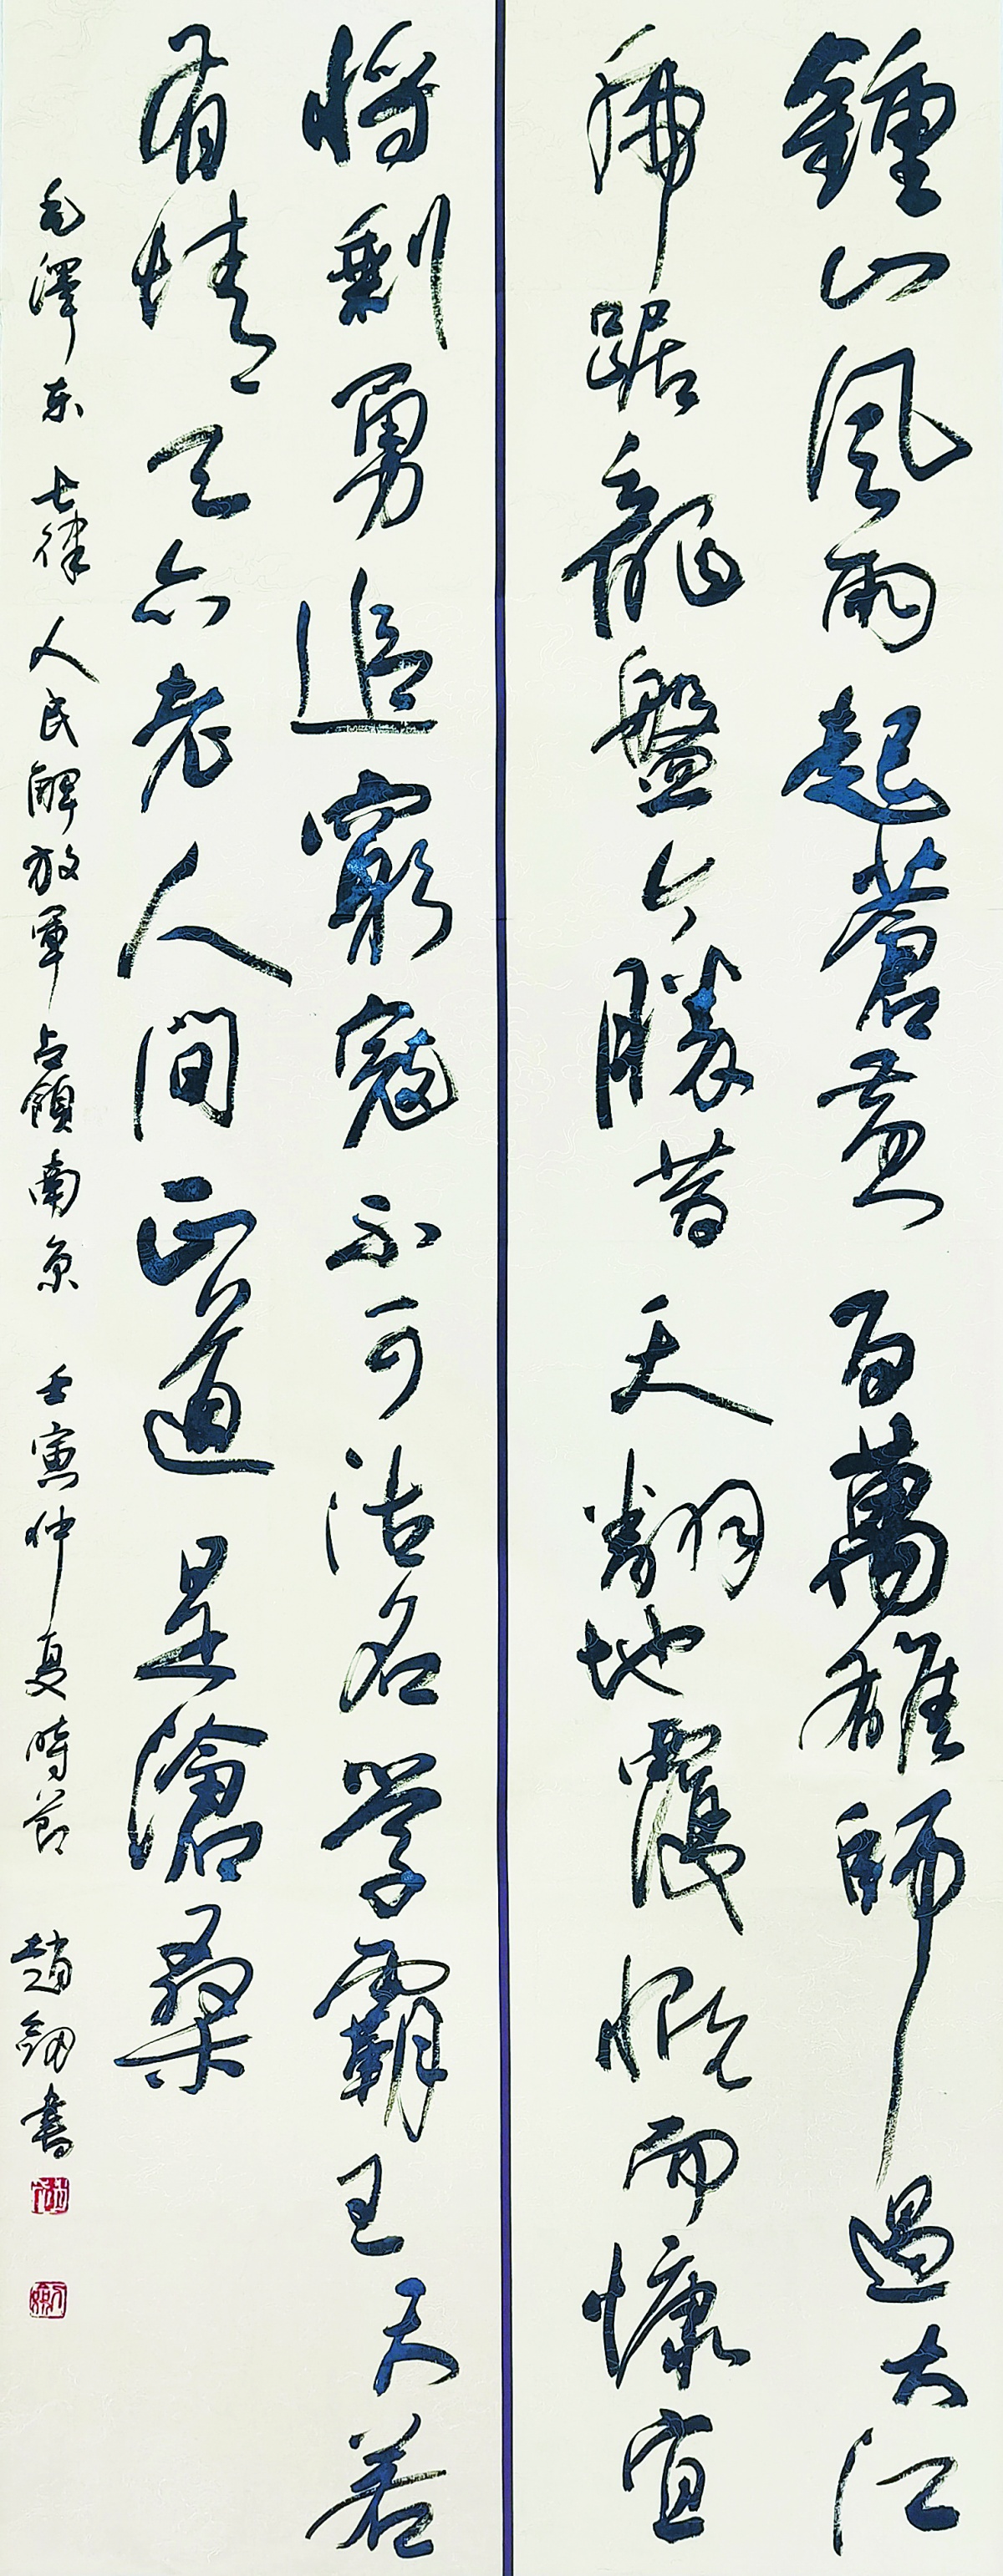 鍾山風雨起蒼黃百萬雄師過大江
虎踞龍盤今勝昔天翻地覆慨而慷宜
將剩勇追窮寇不可沽名学霸王天若
有情天亦老人間正道是滄桑
毛澤东 七律 人民解放軍占領南京 壬寅仲夏時節 趙釼書